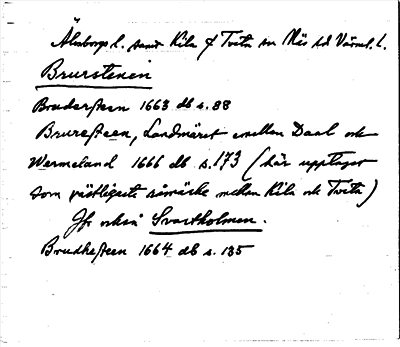 Älvsborgs l. samt Kila & Tveta sn Näs hd Värml. l.
Brurstenen
Brudersteen 1663 db s. 88
Bruresteen, Landmäret emellan Daal och
Wermeland 1666 db s. 173 (här upptaget
som rättligaste råmärke mellan Kila och Tveta)
Jfr också Svartholmen.
Brudhesteen 1664 db s. 135